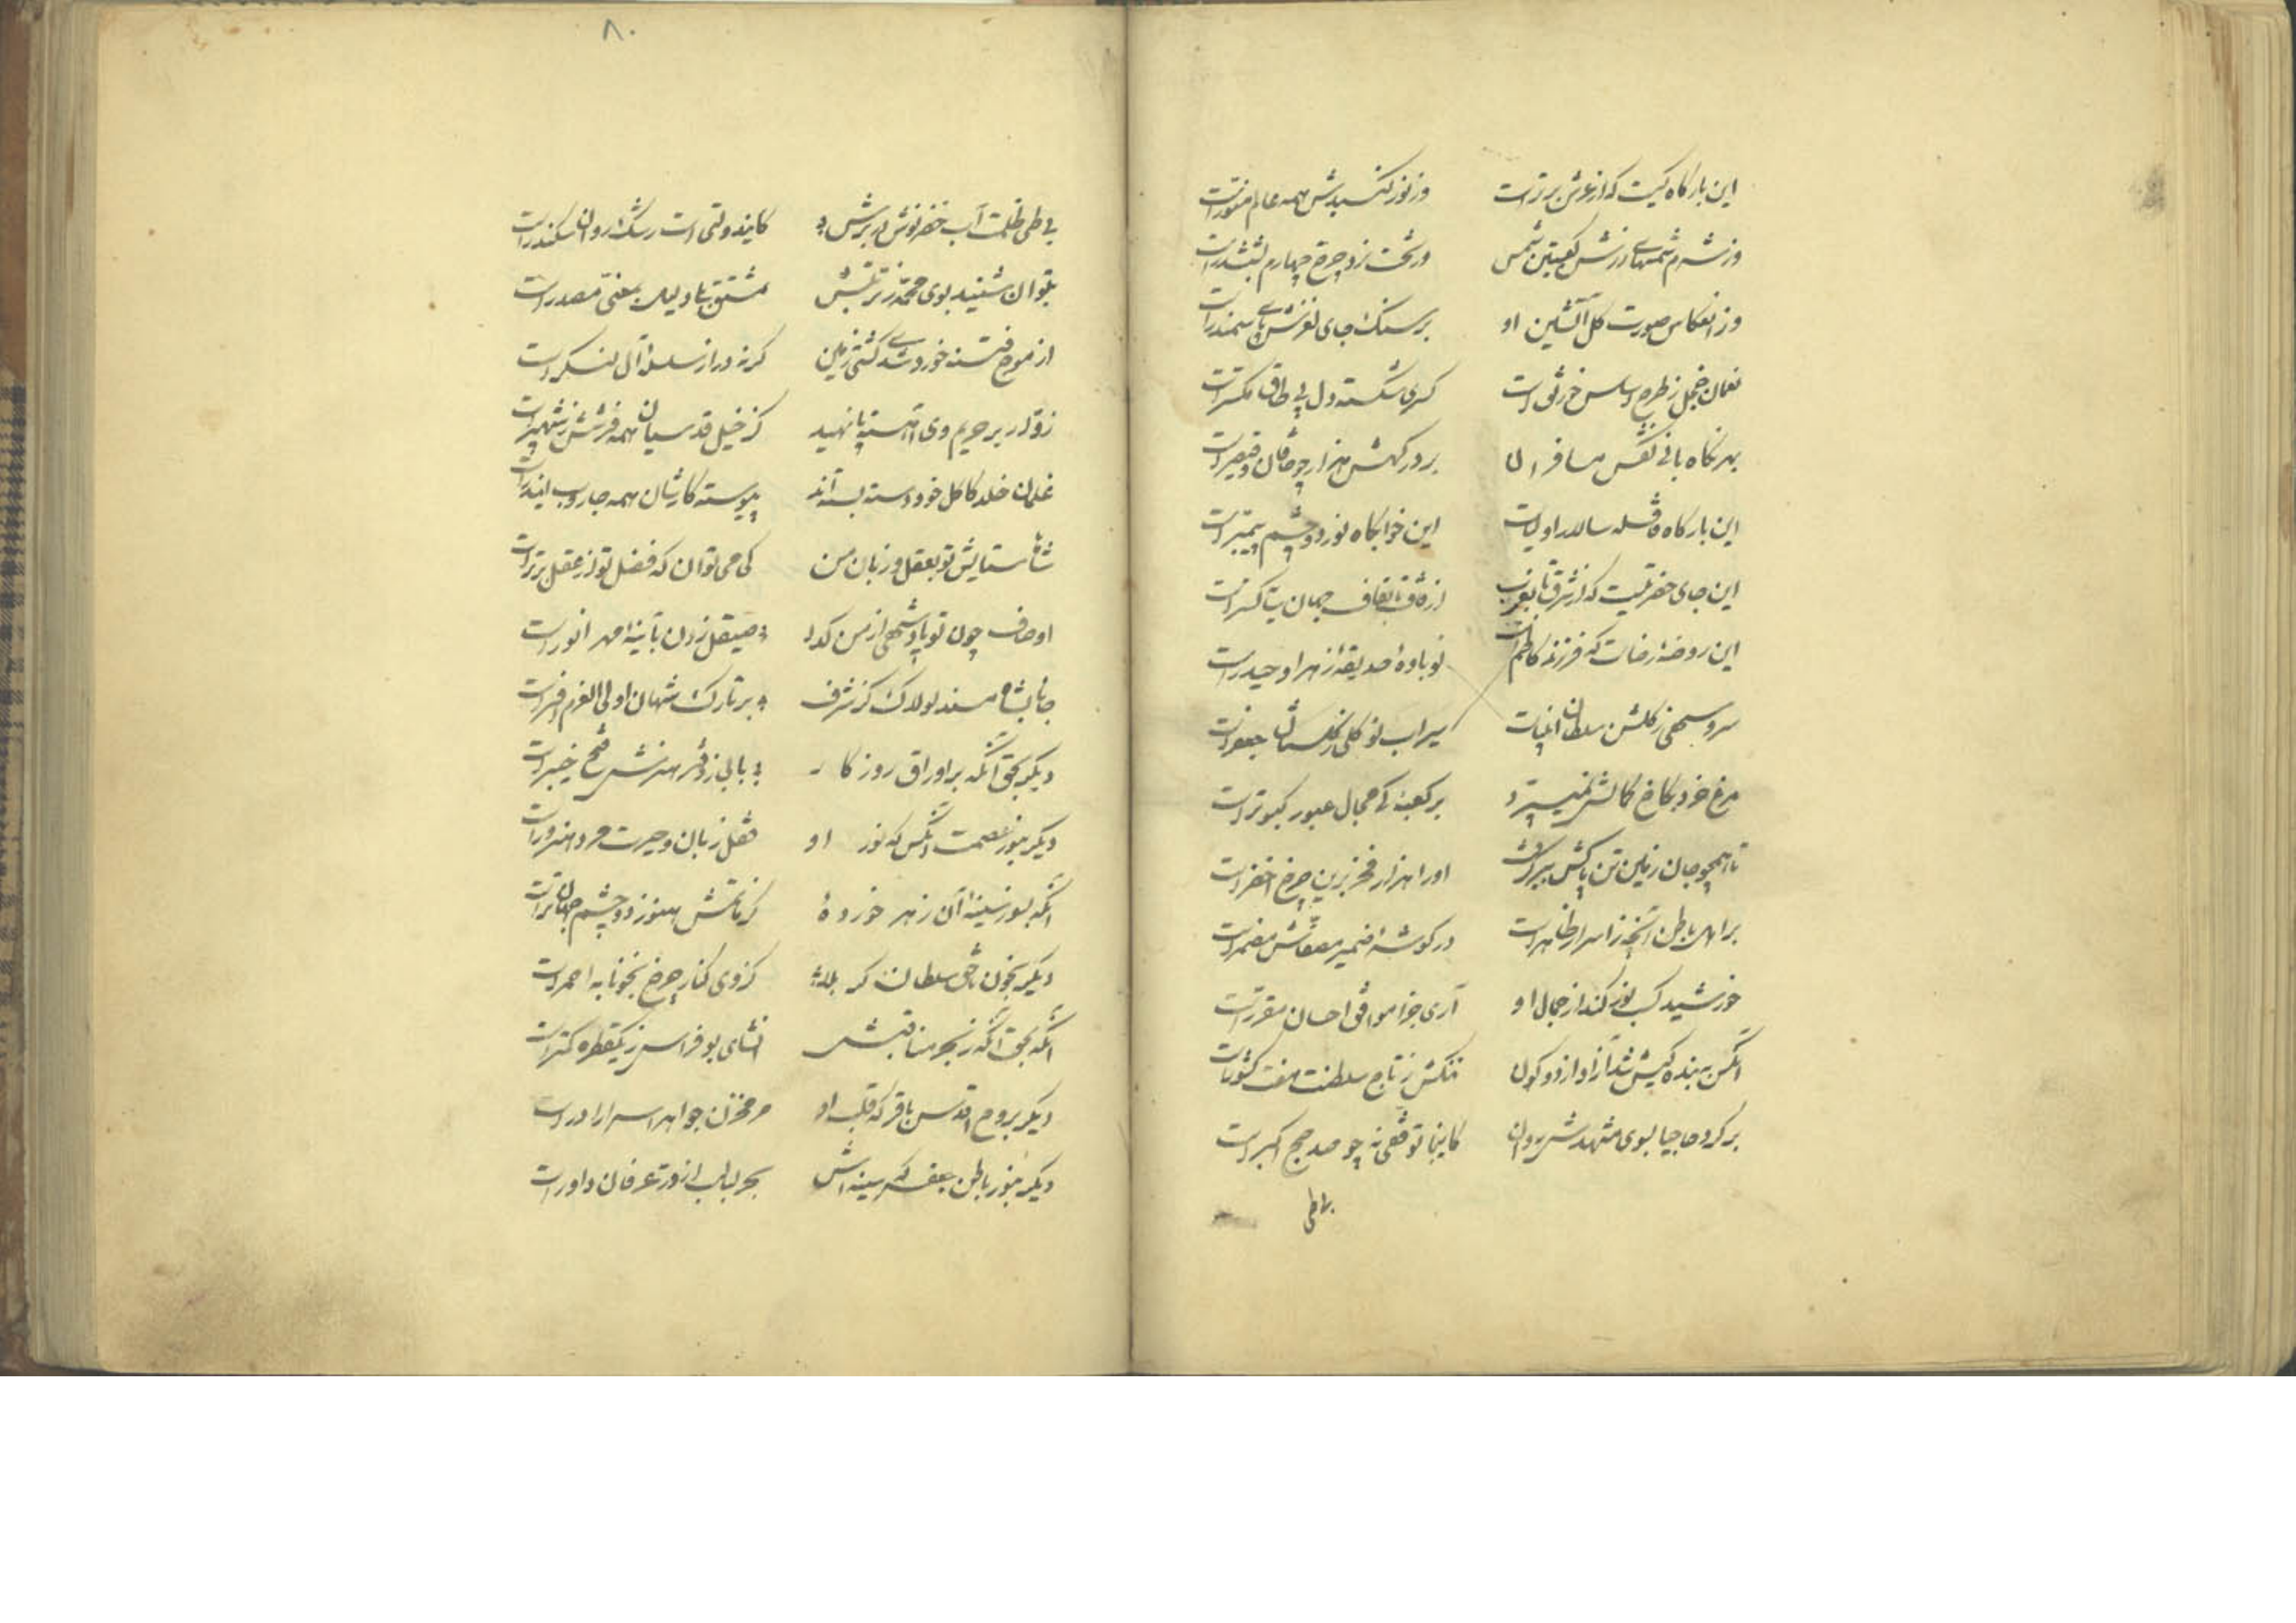 این بارگاه کیست که از عرش برتر است وز نور گنبدش همه عالم منور است
وز شرم شمسهای زرش کعبتین شمس در تخت نرد چرخ چهارم بششدر است
وز انعکاس صورت گل آتشین او بر سنگ جای لغزش پای سمندر است
نعمان خجل ز طرح اساس خورنق است کسری شکسته دل پی طاق مکسر است
بهر نگاه بانی کفش مسافران بر درگهش هزار چو خاقان و قیصر است
این بارگاه قافله سالار اولیاست این خوابگاه نور دو چشم پیمبر است
این جای حضرتیست که از شرق تا بغرب از قاف تا بقاف جهان سایه گستر است
این روضه رضاست که فرزند کاظم است نوباوه حدیقه زهرا و حیدر است
سرو سهی ز گلشن سلطان انبیاست سیراب نوگلی ز گلستان جعفر است
مرغ خرد بکاخ کمالش نمیپرد بر کعبه کی مجال عبور کبوتر است
تا همچو جان زمین تن پاکش ببر گرفت او را هزار فخر برین چرخ اخضر است
بر اهل باطن آنچه ز اسرار ظاهر است در گوشه ضمیر مصفاش مضمر است
خورشید کسب نور کند از جمال او آری جزا موافق احسان مقرر است
آنکس که بنده کیش شد آزاد از دو کون ننگش ز تاج سلطنت هفت کشور است
برگرد حاجیا بسوی مشهدش روان کاینجا توقفی نه چو صد حج اکبر است
بی طی
۸۰
بی طی ظلمت آب خضر نوش بر درش کایندولتی است رشک روان سکندر است
بتوان شنید بوی محمد ز تربتش مشتق بلی دلیل بمعنی مصدر است
از موج فتنه خورد شدی کشتی زمین گر نه ورا ز سلسله آل لنگر است
زوار بر حریم وی آهسته پا نهید کز خیل قدسیان همه فرشش ز شهپر است
غلمان خلد کاکل خود دسته بسته اند پیوسته کارشان همه جاروب این در است
شاها ستایش تو بعقل و زبان من کی می توان که فضل تو از عقل برتر است
اوصاف چون تو پادشهی از من گدا صیقل زدن بآینه مهر انور است
جانا بشاه مسند لولاک کز شرف بر تارک شهان اولی العزم افسر است
دیگر بحق آنکه بر اوراق روزگار بابی ز دفتر هنرش فتح خیبر است
دیگر بنور عصمت آنکس که نور او قفل زبان و حیرت مرد هنرور است
آنکه بسوز سینه آن زهر خورده کز ماتمش هنوز دو چشم جهان تر است
دیگر بخون ناحق سلطان کربلا کز وی کنار چرخ بخونابه احمر است
آنکه بحق آنکه ز بحر مناقبش انشای بوفراس ز یکقطره کمتر است
دیگر بروح اقدس باقر که قلب او مر مخزن جواهر اسرار را در است
دیگر بنور باطن جعفر که سینه اش بحر لبالب از در عرفان داور است